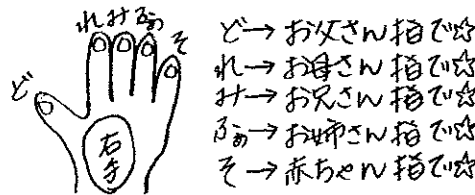 れみふぁそ
ど
右手
ど→お父さん指で☆
れ→お母さん指で☆
み→お兄さん指で☆
ふぁ→お姉さん指で☆
そ→赤ちゃん指で☆